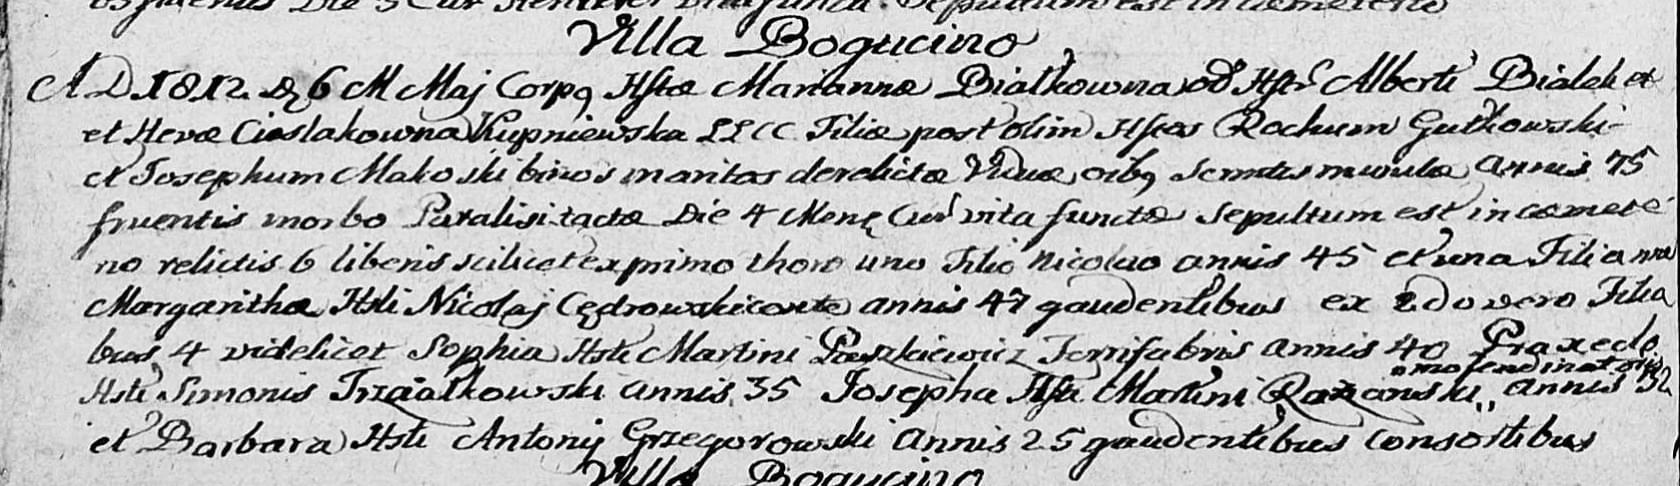 Villa Bogucino
A D 1812 D 6 M Maj Corpq Hstæ Mariannæ Białkowna od Hstr Alberti Bialek et
et Hevæ Cieslakowna Kupniewska LLCC Filiæ post olim Hstos Rochum Gutkowski
et Josephum Makoski binos maritos derelictæ Viduæ oibq Scmtis munitæ annis 75
fruentis morbo Paralisi tactæ Die 4 Mens Cur vita functæ Sepultum est in cæmete
rio relictis 6 liberis scilicet ex primo thoro uno Filio Nicolao annis 45 et una Filia
Margaritha Hsti Nicolaj Cędrowski annis 47 gaudentibus ex 2do vero Filia
bus 4 videlicet Sophia Hsti Martini Paszkiewicz Ferrifabris annis 40 Praxeda
Hsti Simonis Trzaalkowski annis 35 Josepha Hsti Martini annis 32
et Barbara Hsti Antonij Grzegorowski annis 25 gaudentibus consortibus
Villa Bogucino